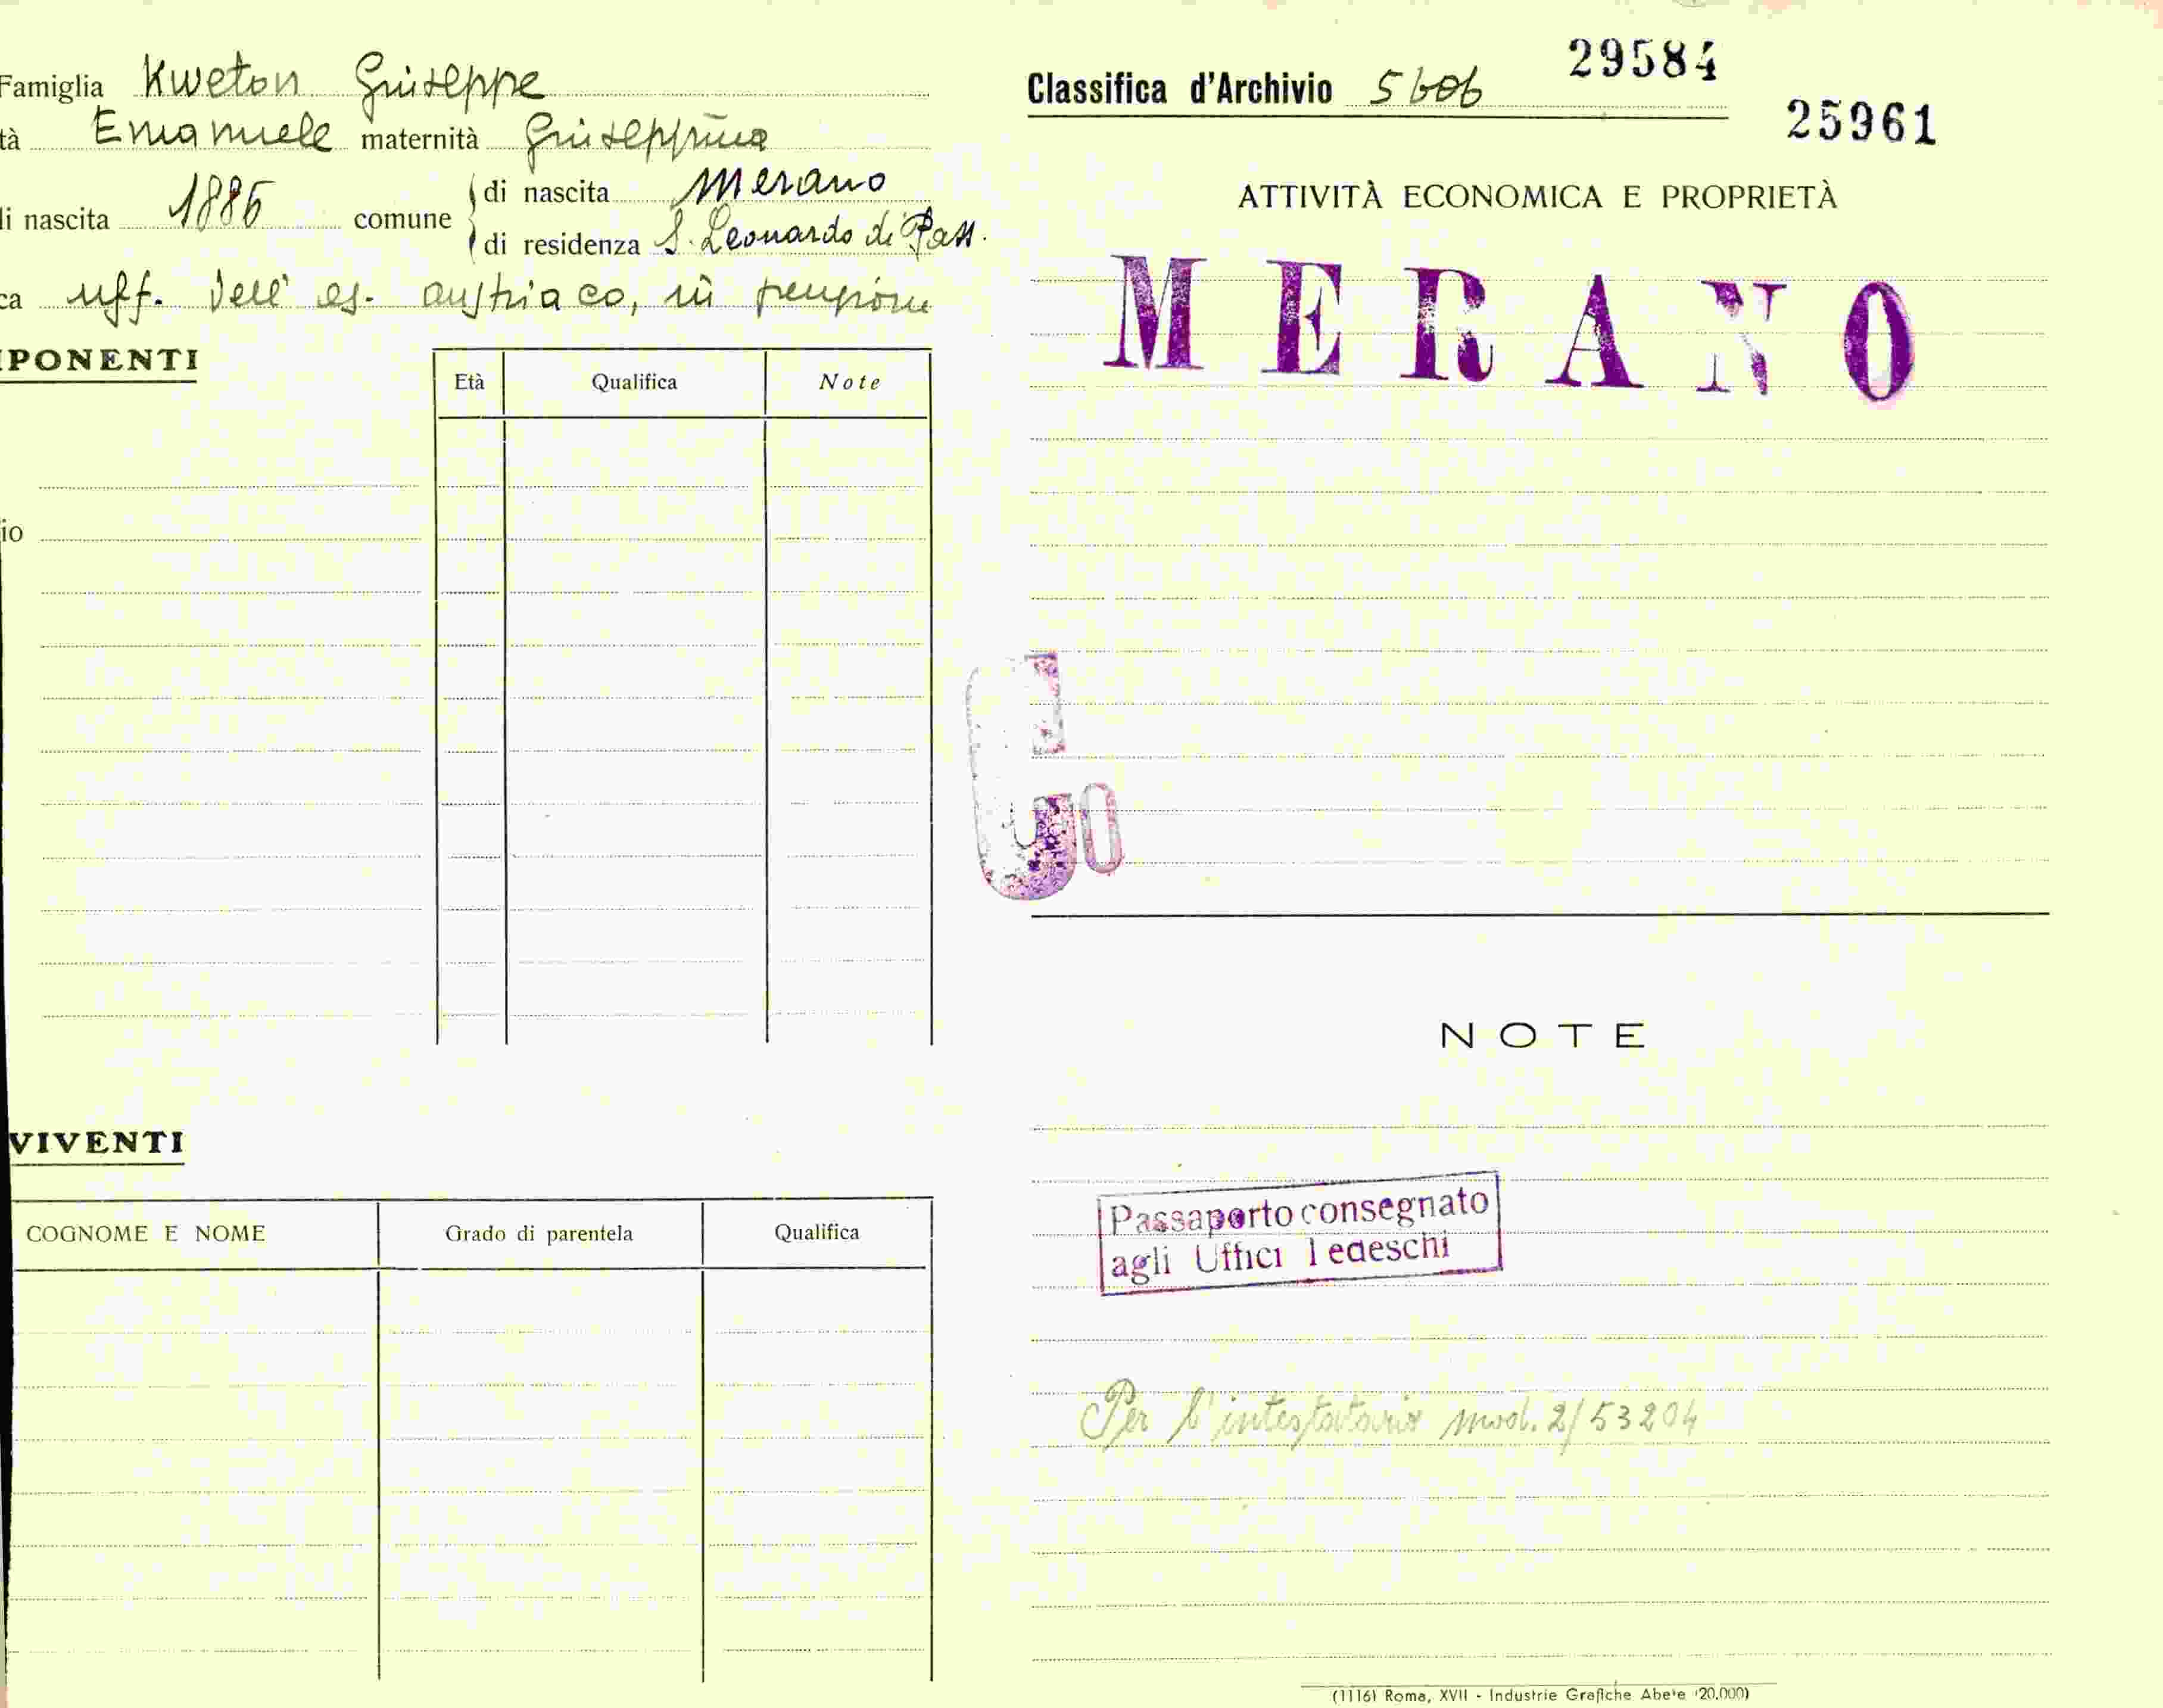 Famiglia Kweton Giuseppe
tà Emanuele maternità Giuseppina
di nascita Merano
li nascita 1886 comune
di residenza S. Leonardo di Pass.
ca uff. dell' es. austriaco, in pensione
PONENTI
Età Qualifica Note
io
VIVENTI
COGNOME E NOME Grado di parentela Qualifica
29584
Classifica d'Archivio 5606
25961
ATTIVITÀ ECONOMICA E PROPRIETÀ
MERANO
NOTE
Passaporto consegnato
agli Uffici Tedeschi
Per l'intestatario mod. 2/53204
(1116) Roma, XVII - Industrie Grafiche Abete (20.000)